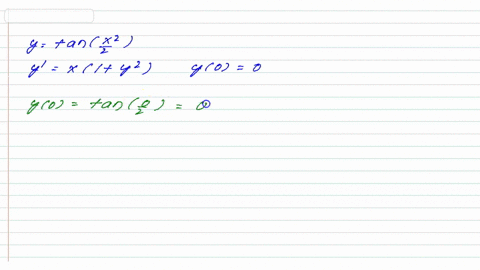 y = tan(x²/2)
y' = x(1+y²) y(0) = 0
y(0) = tan(0/2) = 0